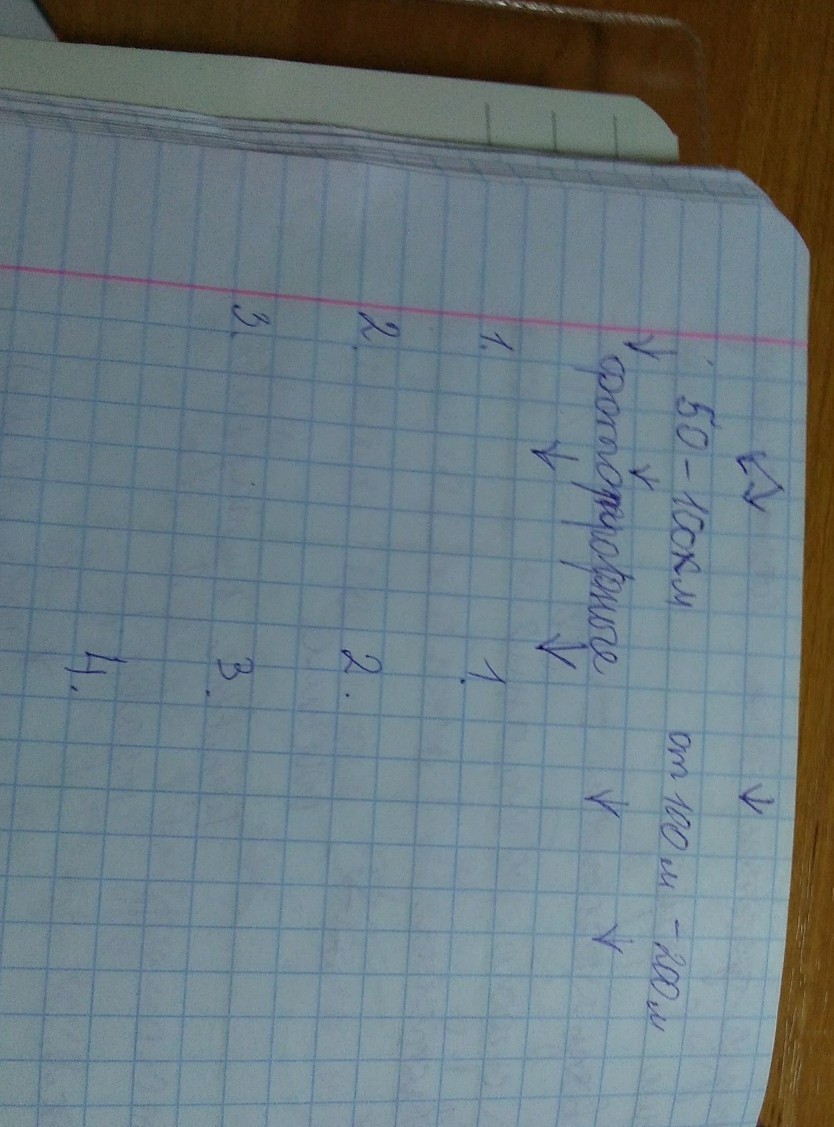 50 - 100км от 100 м - 200 м
1. 1.
2. 2.
3. 3.
4.